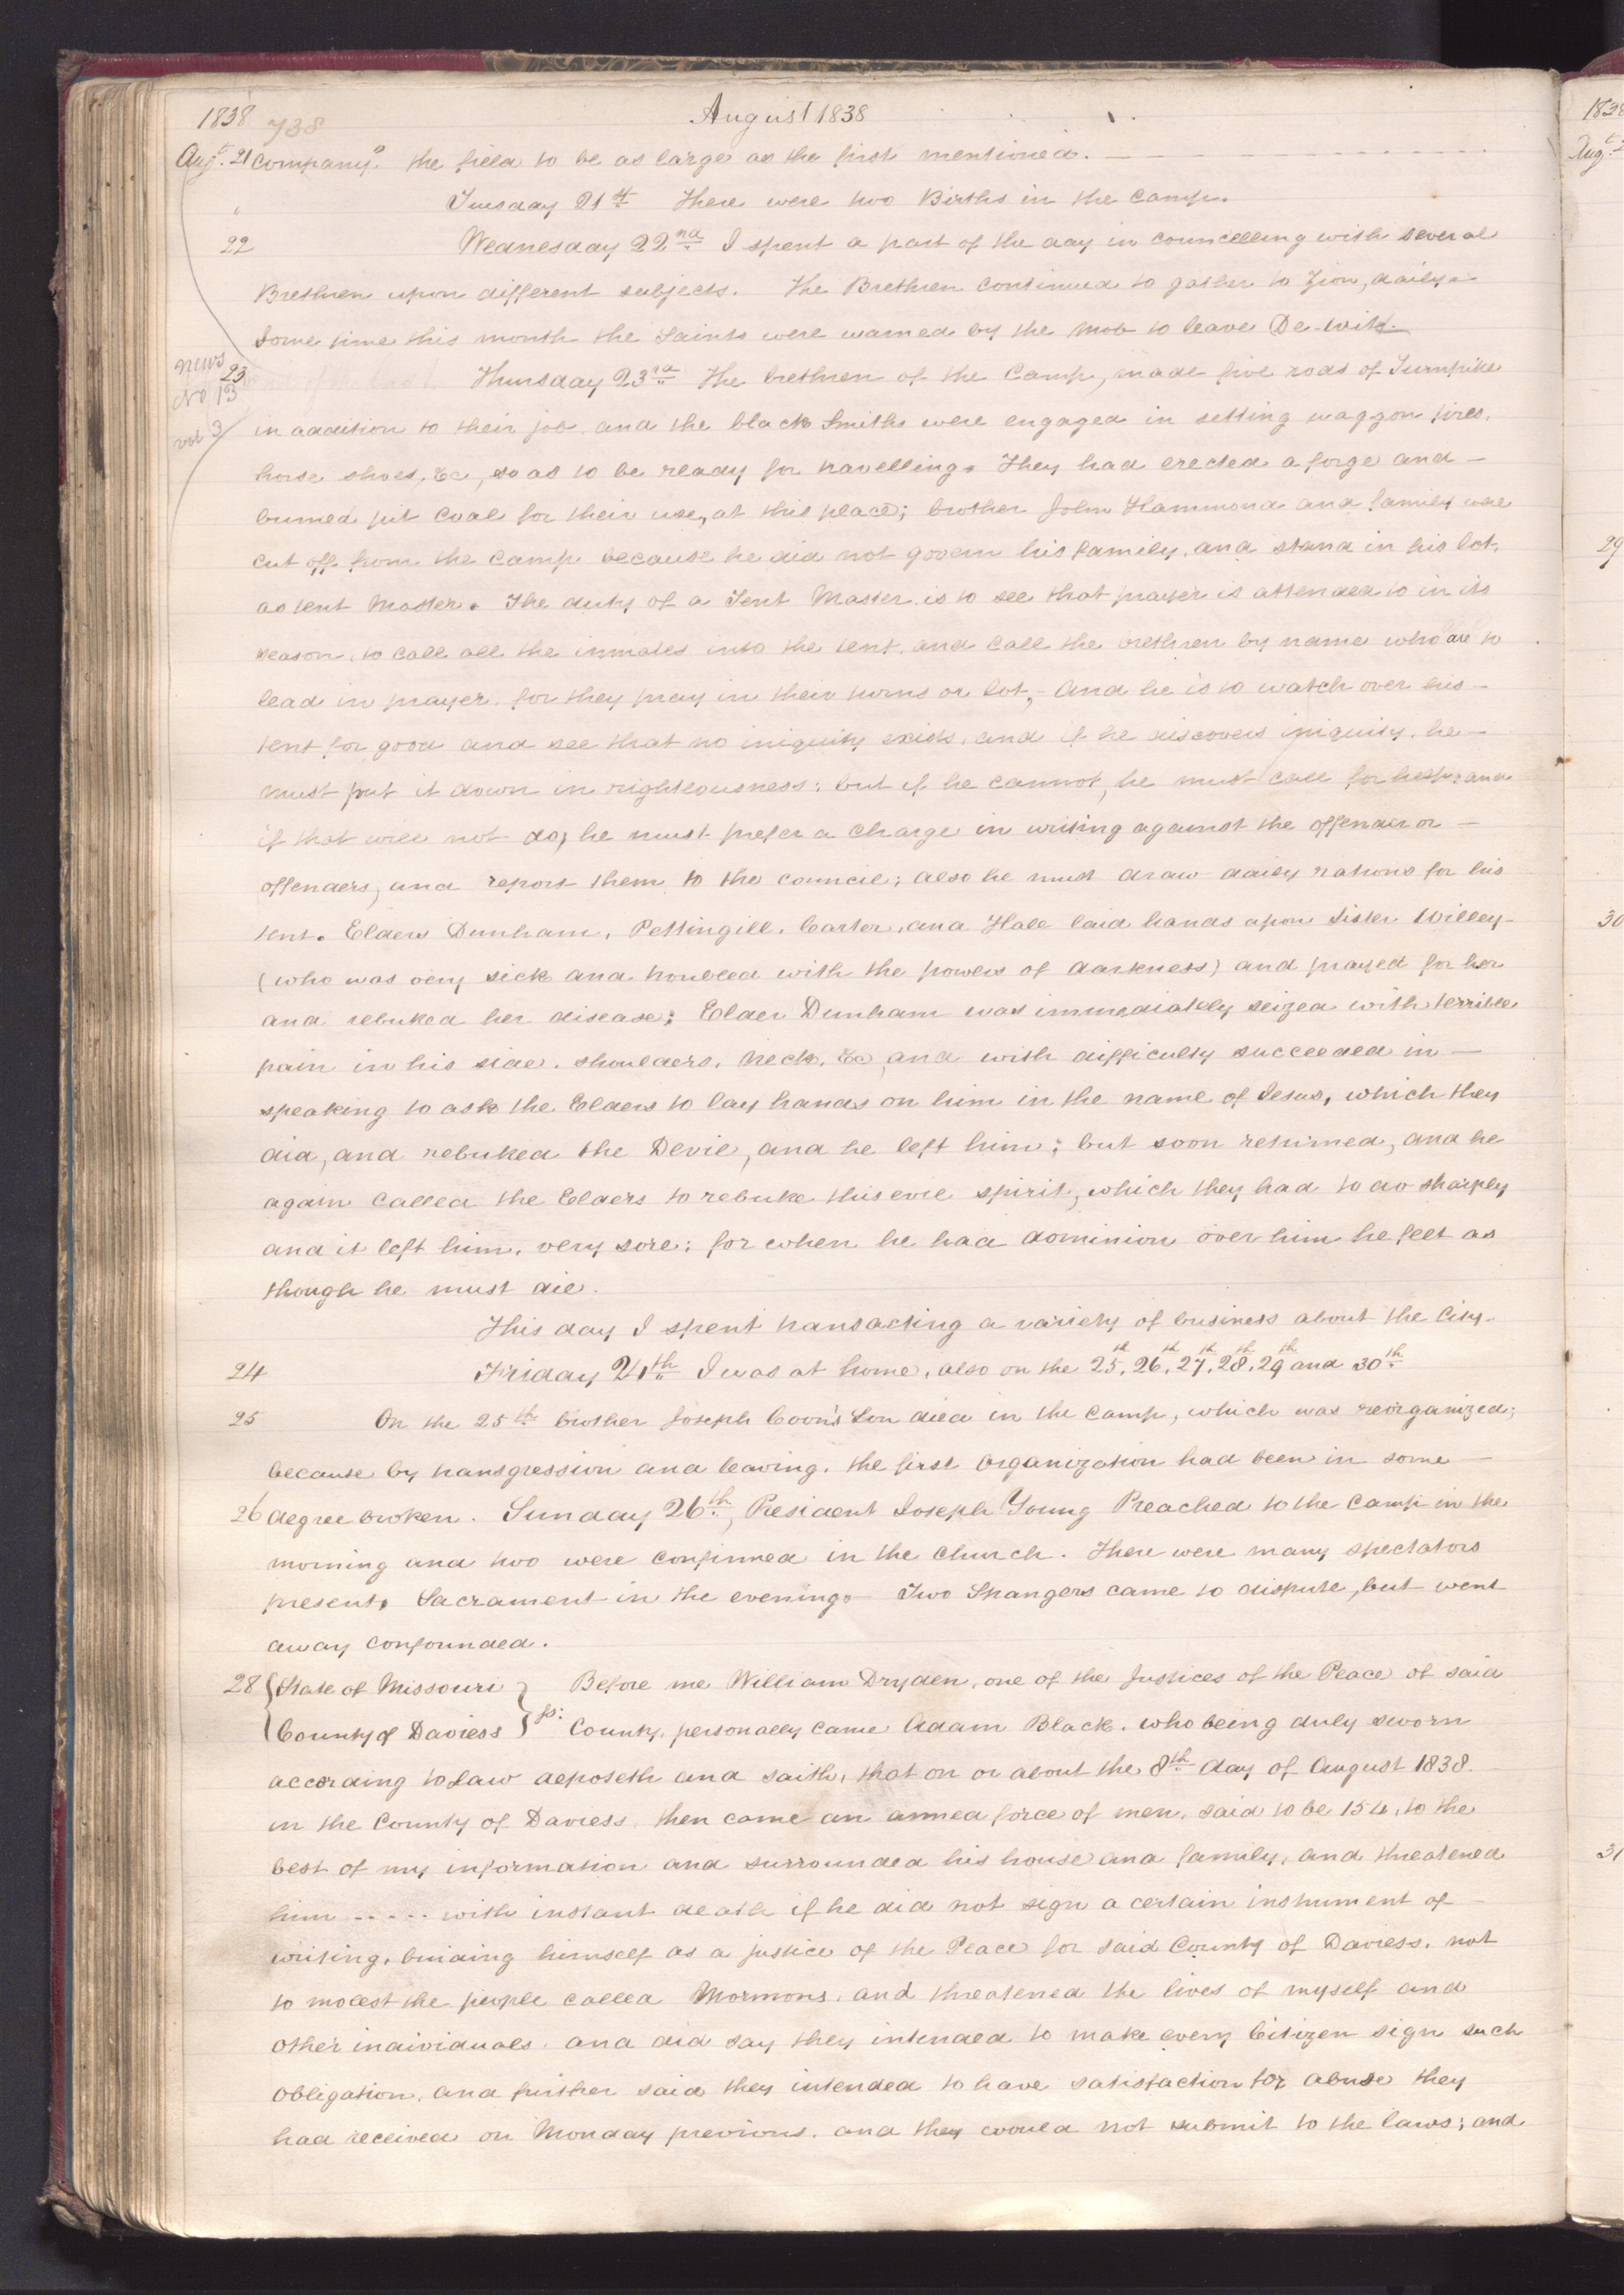 1838 738 August 1838
Augt. 21 company. the field to be as large as the first mentioned.
" Tuesday 21st There were two Births in the Camp.
22 Wednesday 22nd I spent a part of the day in councelling with several
Brethren upon different subjects. The Brethren continued to gather to Zion, daily.
Some time this month the Saints were warned by the mob to leave De-Witt.
News No 13 vol 3
23 Thursday 23rd The brethren of the Camp, made five rods of Turnpike
in addition to their job and the black Smiths were engaged in setting waggon tires,
horse shoes, &c, so as to be ready for travelling. They had erected a forge and
burned pit coal for their use, at this place; brother John Hammond and family was
cut off from the camp because he did not govern his family, and stand in his lot,
as tent Master. The duty of a Tent Master is to see that prayer is attended to in its
season, to call all the inmates into the tent, and call the brethren by name who are to
lead in prayer, for they pray in their turns or lot,- and he is to watch over his
tent for good and see that no iniquity exists, and if he discovers iniquity, he
must put it down in righteousness; but if he cannot, he must call for help: and
if that will not do, he must prefer a charge in writing against the offender or
offenders, and report them to the council; also he must draw daily rations for his
tent. Elders Dunham, Pettingill, Carter, and Hale laid hands upon Sister Willey
(who was very sick and troubled with the powers of darkness) and prayed for her
and rebuked her disease; Elder Dunham was immediately seized with terrible
pain in his side, shoulders, neck, &c, and with difficulty succeeded in
speaking to ask the Elders to lay hands on him in the name of Jesus, which they
did, and rebuked the Devil, and he left him; but soon returned, and he
again called the Elders to rebuke this evil spirit, which they had to do sharply
and it left him, very sore; for when he had dominion over him he felt as
though he must die.
This day I spent transacting a variety of business about the City.
24 Friday 24th I was at home, also on the 25th, 26th, 27th, 28th, 29th and 30th
25 On the 25th brother Joseph Coon's Son died in the camp, which was reorganized;
because by transgression and leaving, the first organization had been in some
26 degree broken. Sunday 26th, President Joseph Young Preached to the Camp in the
morning and two were confirmed in the church. There were many spectators
present, Sacrament in the evening. Two Strangers came to dispute, but went
away confounded.
28 {State of Missouri } Before me William Dryden, one of the Justices of the Peace of said
{County of Daviess } ss: County, personally came Adam Black, who being duly sworn
according to Law deposeth and saith, that on or about the 8th day of August 1838.
in the County of Daviess, then came an armed force of men, said to be 154, to the
best of my information and surrounded his house and family, and threatened
him ..... with instant death if he did not sign a certain instrument of
writing, binding himself as a justice of the Peace for said County of Daviess, not
to molest the people called Mormons, and threatened the lives of myself and
other individuals, and did say they intended to make every Citizen sign such
obligation, and further said they intended to have satisfaction for abuse they
had received on Monday previous, and they could not submit to the laws; and
1838
Aug.
29
30
31